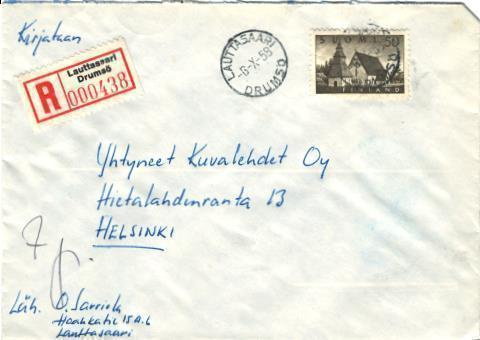 Kirjataan
Lauttasaari
Drumsö
R 000438
LAUTTASAARI
-6-X-58
DRUMSÖ
SUOMI 50
FINLAND
Yhtyneet Kuvalehdet Oy
Hietalahdenranta 13
HELSINKI
7
Läh. O.
15 A.6
Lauttasaari